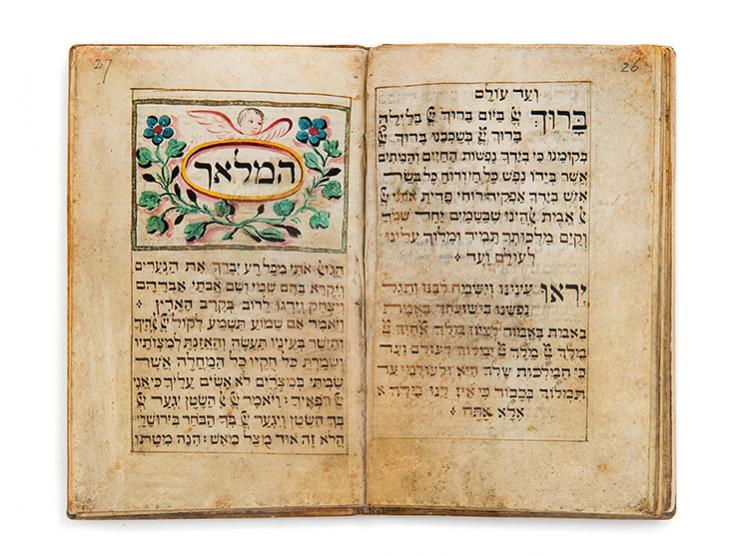 26
ועד עולם
ברוך יי ביום ברוך יי בלילה
ברוך יי בשכבנו ברוך יי
בקומנו כי בידך נפשות החיים והמתים
אשר בידו נפש כל חי ורוח כל בשר
איש בידך אפקיד רוחי פדית אותי יי
ﭏ אמת ﭏהינו שבשמים יחד שמך
וקים מלכותך תמיד ומלוך עלינו
לעולם ועד
יראו עינינו וישמח לבנו ותגל
נפשנו בישועתך באמת
באמור לציון מלך ﭏהיך יי
מלך יי מלך יי ימלוך לעולם ועד
כי המלכות שלך היא ולעולמי עד
תמלוך בכבוד כי אין לנו מלך א
אלא אתה
27
המלאך
הגואל אתי מכל רע יברך את הנערים
ויקרא בהם שמי ושם אבתי אברהם
ויצחק וידגו לרוב בקרב הארץ
ויאמר אם שמוע תשמע לקול יי ﭏהיך
והישר בעיניו תעשה והאזנת למצותיו
ושמרת כל חקיו כל המחלה אשר
שמתי במצרים לא אשים עליך כי אני
יי רפאיך: ויאמר יי ﭏ השטן יגער יי
בך השטן ויגער יי בך הבחר בירושלי
הלא זה אוד מצל מאש: הנה מטתו